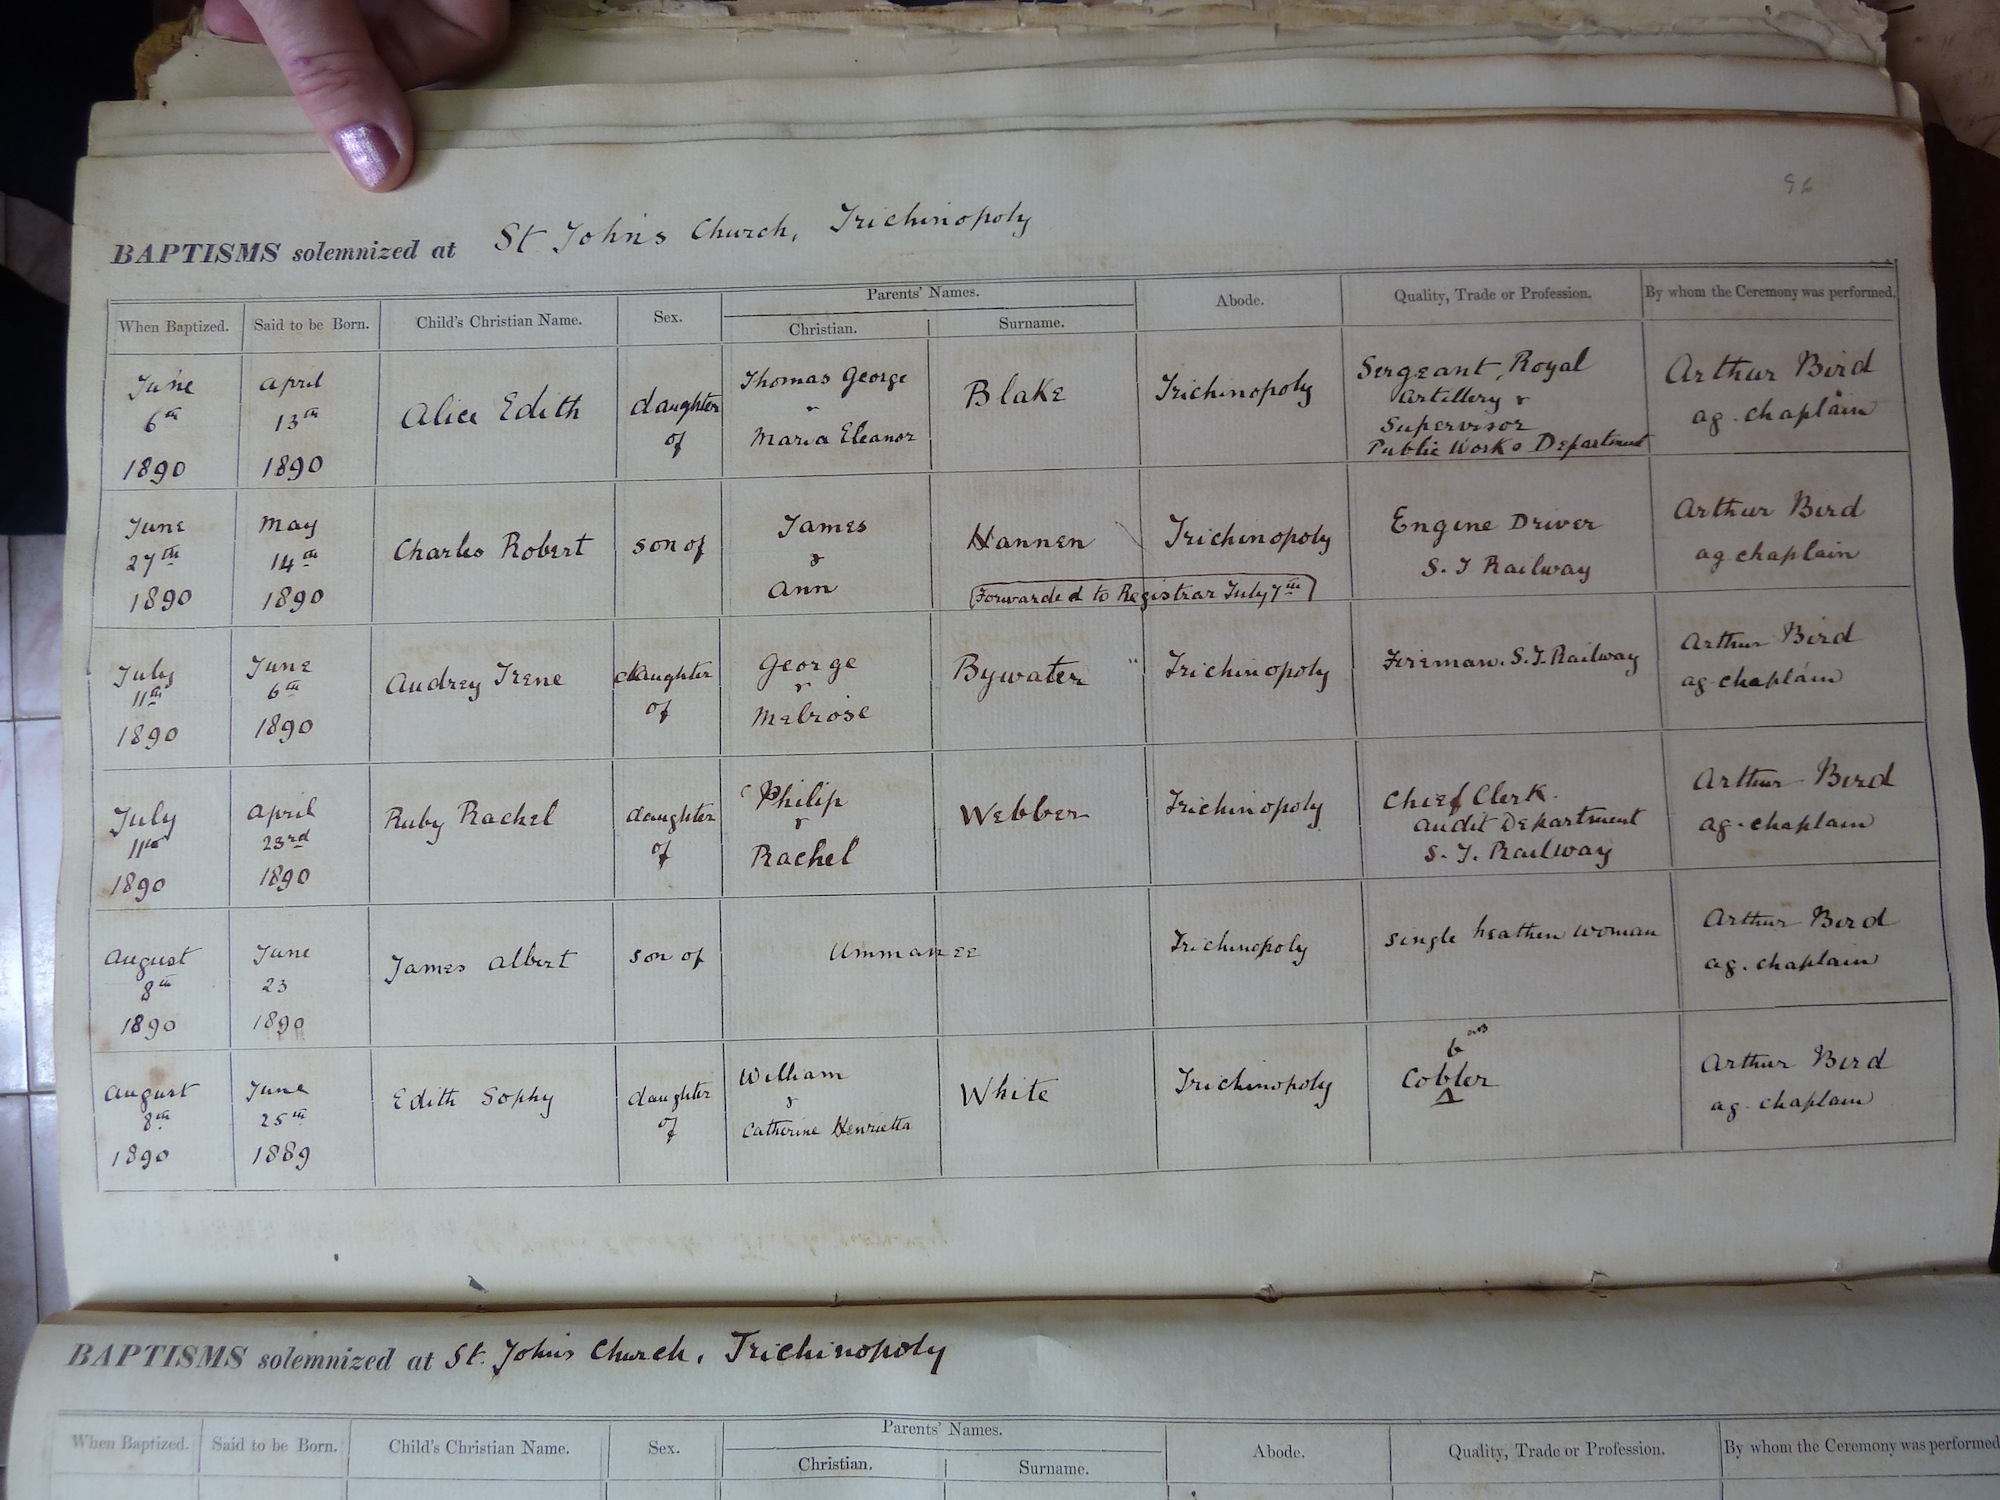 96
BAPTISMS solemnized at St John's Church, Trichinopoly
When Baptized. Said to be Born. Child's Christian Name. Sex. Parents' Names. Christian. Surname. Abode. Quality, Trade or Profession. By whom the Ceremony was performed.
June 6th 1890
April 13th 1890
Alice Edith
daughter of
Thomas George
&
Maria Eleanor
Blake
Trichinopoly
Sergeant, Royal
Artillery &
Supervisor
Public Works Department
Arthur Bird
ag. chaplain
June 27th 1890
May 14th 1890
Charles Robert
son of
James
&
Ann
Hannen
Trichinopoly
Engine Driver
S. I Railway
Arthur Bird
ag chaplain
Forwarded to Registrar July 7th
July 11th 1890
June 6th 1890
Audrey Irene
daughter of
George
&
Melrose
Bywater
"
Trichinopoly
Fireman. S. I. Railway
Arthur Bird
ag chaplain
July 11th 1890
April 23rd 1890
Ruby Rachel
daughter of
Philip
&
Rachel
Webber
Trichinopoly
Chief Clerk.
Audit Department
S. I. Railway
Arthur Bird
ag. chaplain
August 8th 1890
June 23 1890
James Albert
son of
Ummanee
Trichinopoly
single heathen woman
Arthur Bird
ag. chaplain
August 8th 1890
June 25th 1889
Edith Sophy
daughter of
William
&
Catherine Henrietta
White
Trichinopoly
b
Cobler
Arthur Bird
ag. chaplain
BAPTISMS solemnized at St. John's Church, Trichinopoly
When Baptized. Said to be Born. Child's Christian Name. Sex. Parents' Names. Christian. Surname. Abode. Quality, Trade or Profession. By whom the Ceremony was performed